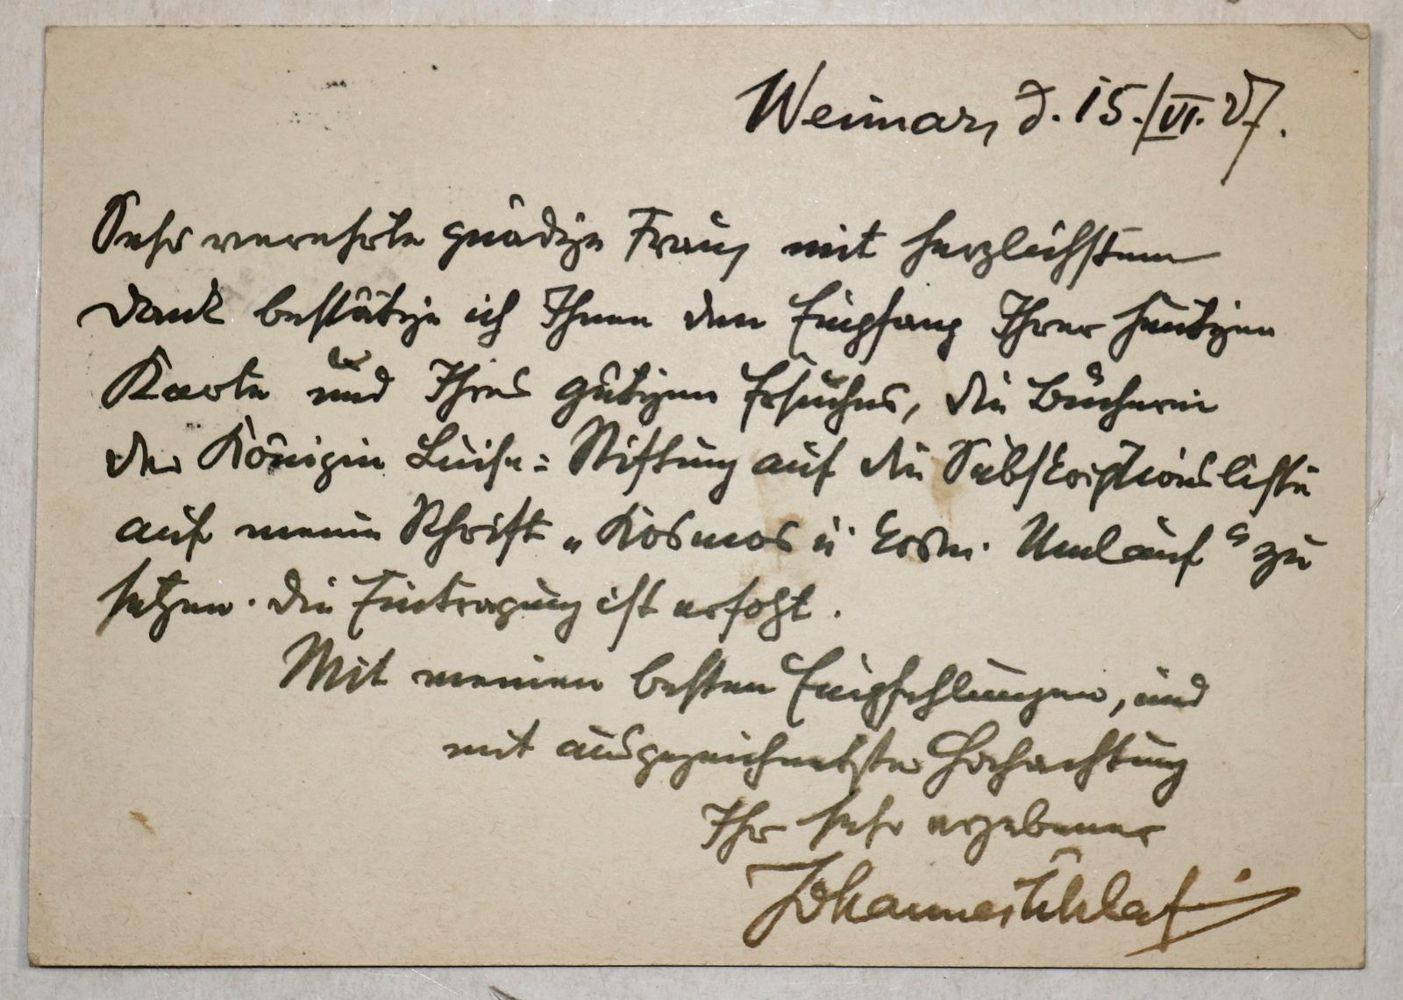 Weimar, d. 15./VI. 27.
Sehr verehrte gnädige Frau, mit herzlichstem
Dank bestätige ich Ihnen den Empfang Ihrer heutigen
Karte und Ihres gütigen Ersuchens, die Bücherei
der Königin Luise=Stiftung auf die Subskriptionsliste
auf meine Schrift „Kosmos u. kosm. Umlauf“ zu
setzen. Die Eintragung ist erfolgt.
Mit meinen besten Empfehlungen, und
mit ausgezeichnetster Hochachtung
Ihr sehr ergebener
Johannes Schlaf.